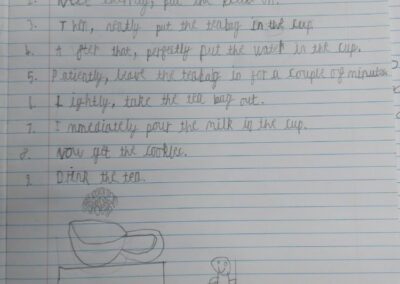 put the
3. Then, neatly put the teabag in the cup
4. After that, perfectly put the water in the cup.
5. Patiently, leave the teabag in for a couple of minutes.
6. Lightly, take the tea bag out.
7. Immediately pour the milk in the cup.
8. Now get the cookies.
9. Drink the tea.